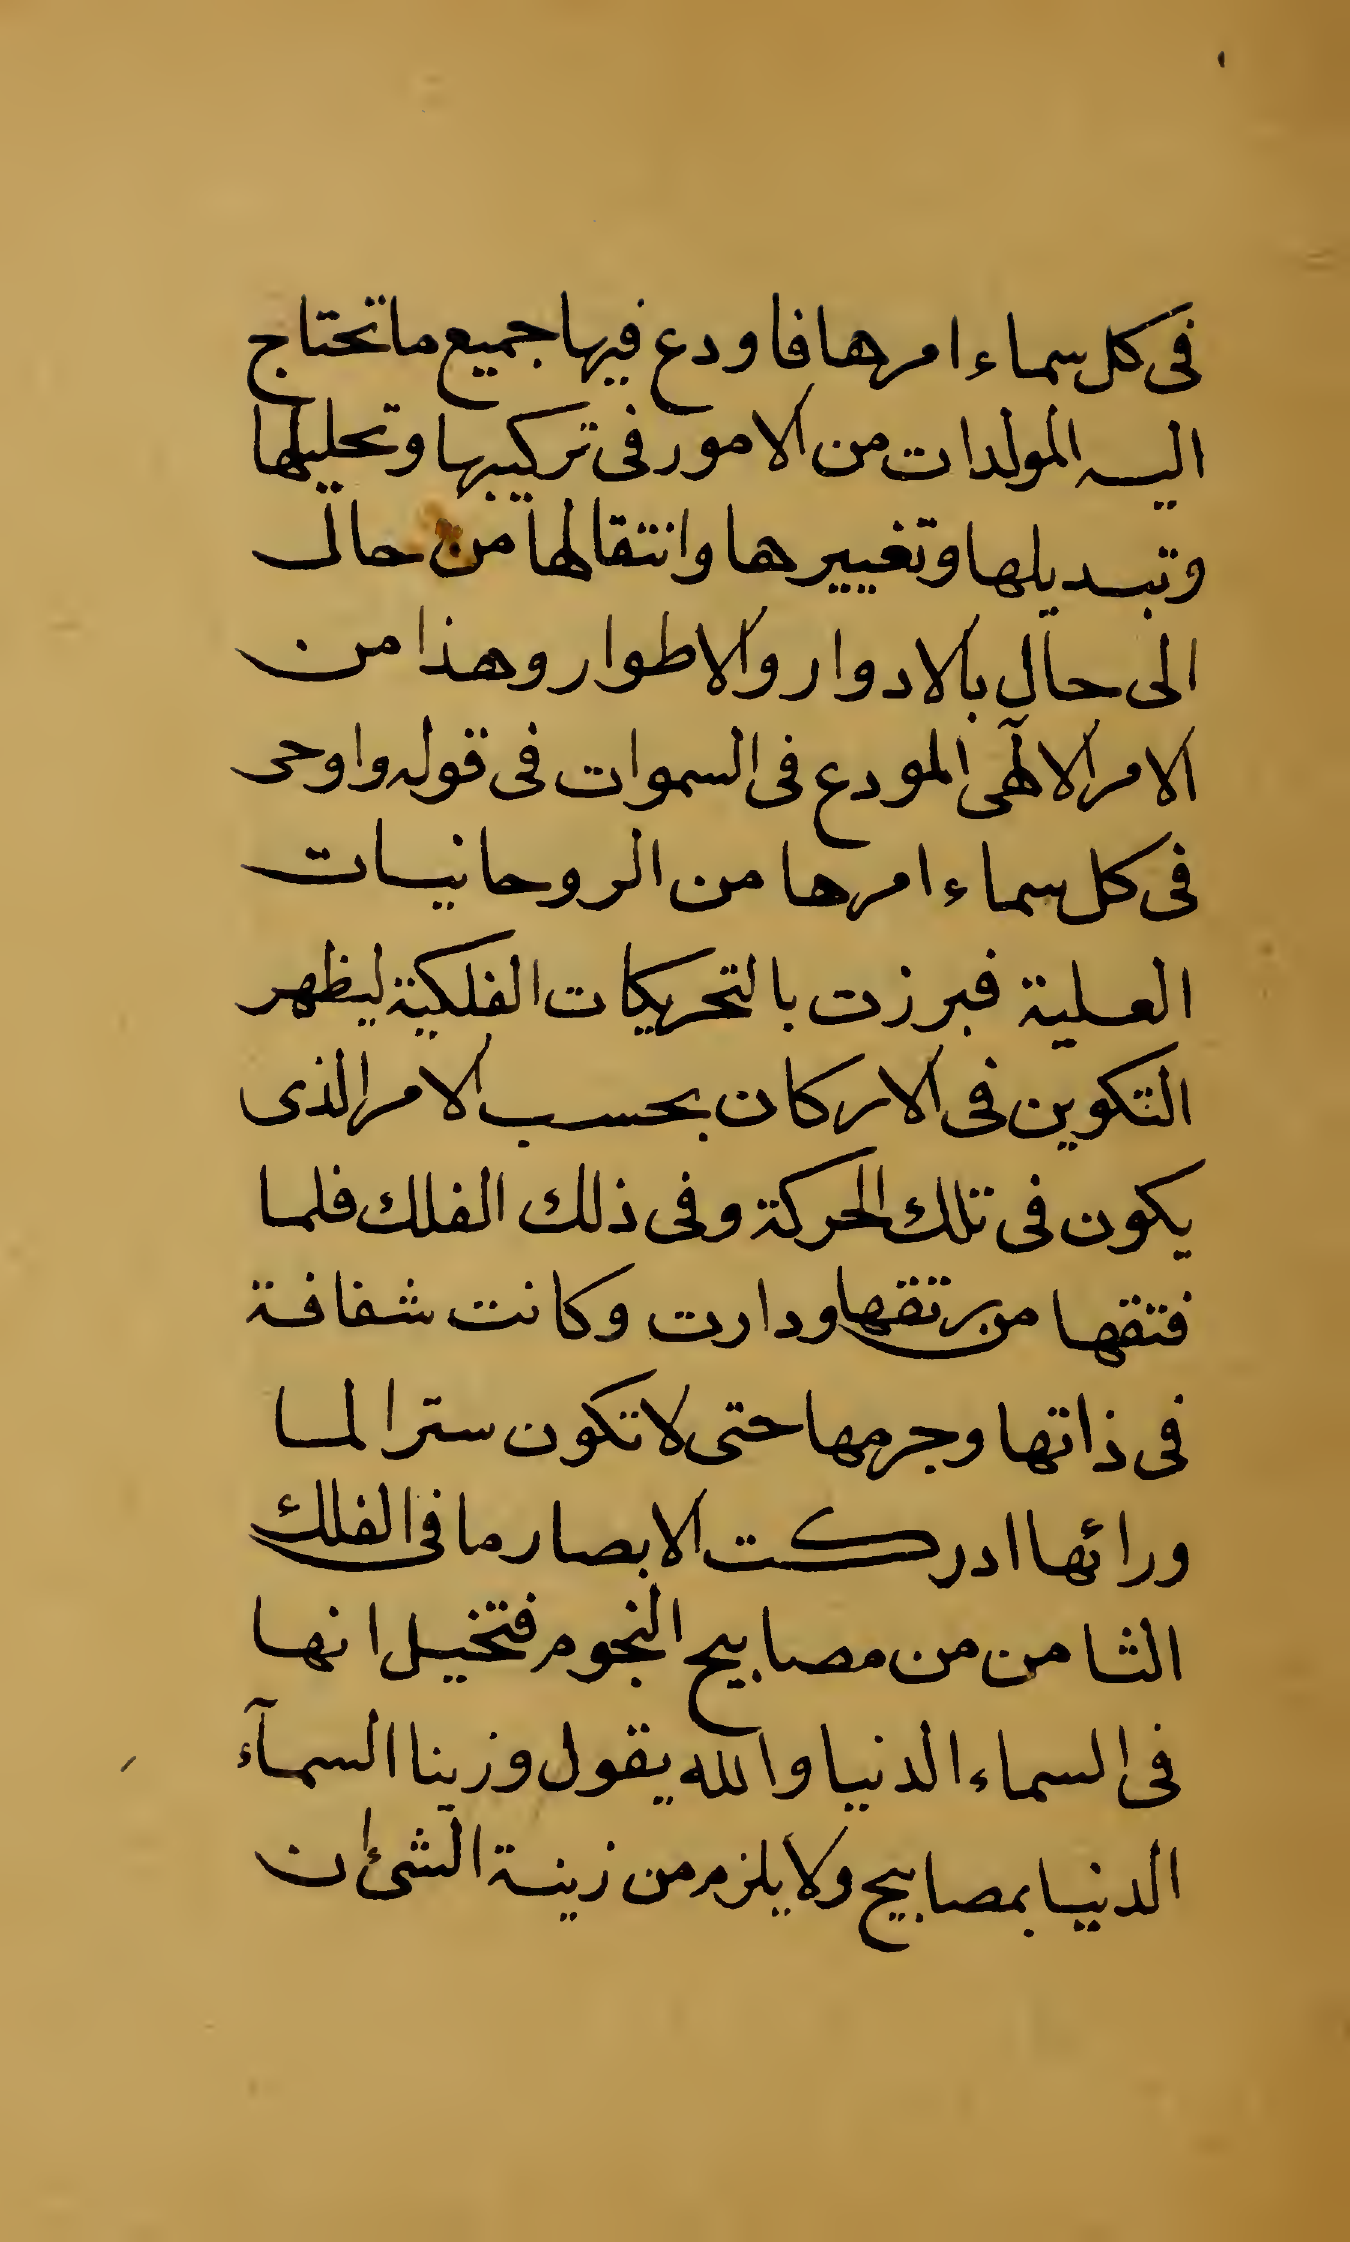 فى كل سماء امرها فاودع فيها جميع ما تحتاج
اليه المولدات من الامور فى تركيبها وتحليلها
وتبديلها وتغييرها وانتقالها من حال
الى حال بالادوار والاطوار وهذا من
الامر الالٓهى المودع فى السموات فى قوله واوحى
فى كل سماء امرها من الروحانيات
العلية فبرزت بالتحريكات الفلكية ليظهر
التكوين فى الاركان بحسب الامر الذى
يكون فى تلك الحركة وفى ذلك الفلك فلما
فتقها من رتقها ودارت وكانت شفافة
فى ذاتها وجرمها حتى لا تكون سترا لما
ورائها ادركت الابصار ما فى الفلك
الثامن من مصابيح النجوم فتخيل انها
فى السماء الدنيا والله يقول وزينا السمآء
الدنيا بمصابيح ولا يلزم من زينة الشئ ان